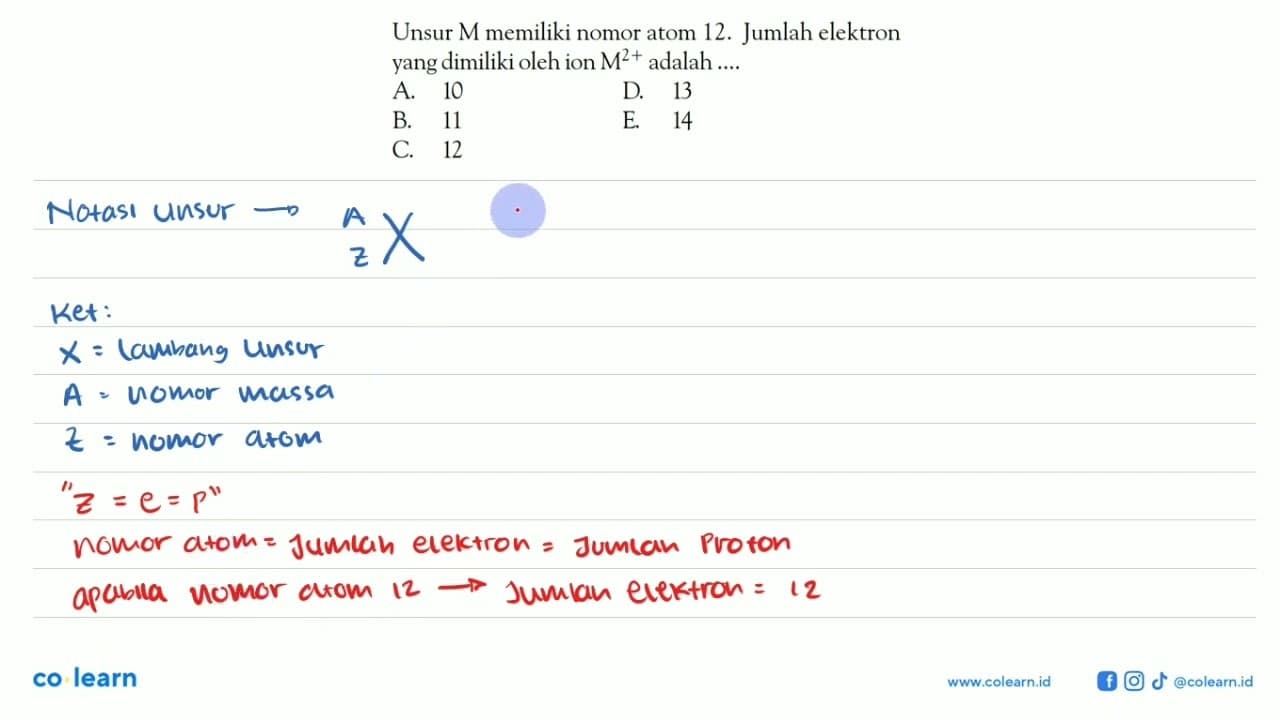 Unsur M memiliki nomor atom 12. Jumlah elektron
yang dimiliki oleh ion M²⁺ adalah ....
A. 10 D. 13
B. 11 E. 14
C. 12
Notasi unsur → A Z X
Ket:
X = lambang unsur
A = nomor massa
Z = nomor atom
"Z = e = p"
nomor atom = Jumlah elektron = Jumlah Proton
apabila nomor atom 12 → Jumlah elektron = 12
co·learn
www.colearn.id @colearn.id